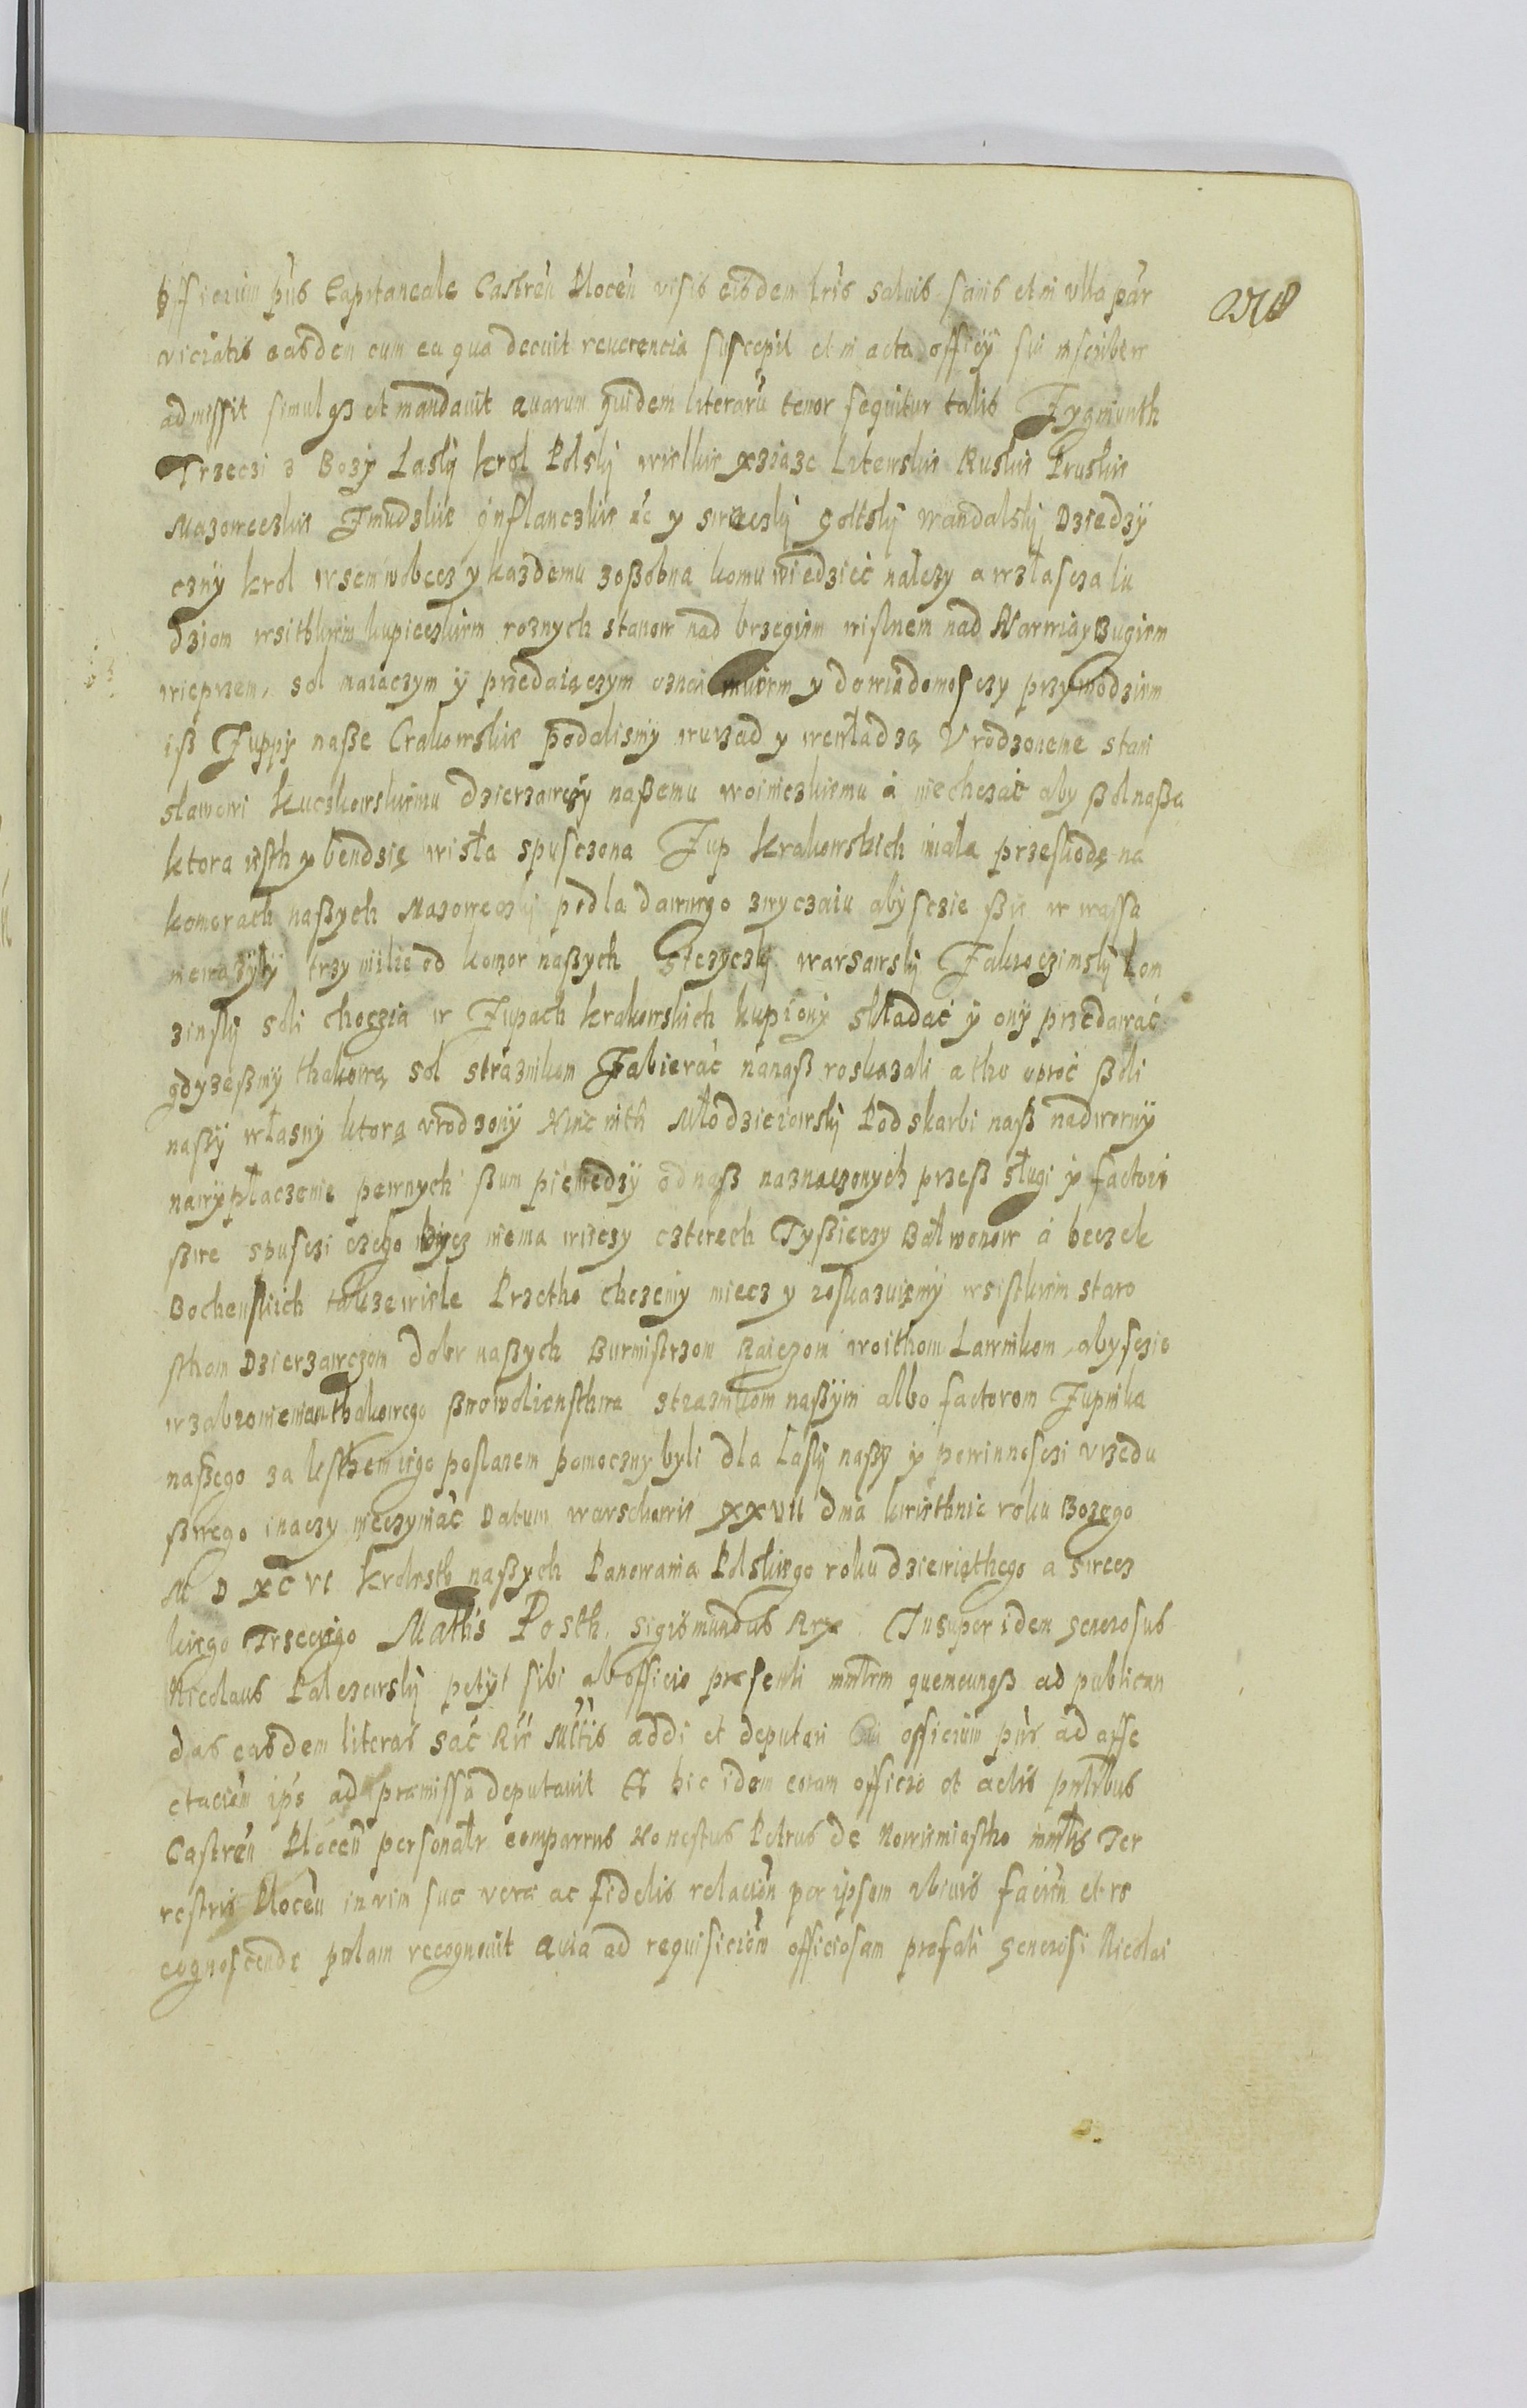 officium pns Capitaneale Castren Plocen visis eisdem lris salvis sanis et in vlla par
viciatis easdem cum ea qua decuit reuerencia suscepit et in acta officÿ sui inscribere
admissit simulqз et mandauit quarum quidem literaru tenor sequitur talis Zygmunth
Trzeczi з Bozÿ Laskÿ krol Polskÿ wielkie xзiaзe Litewskie Ruskie Pruskie
Maзowieczkie Zmudзkie ÿnflanczkie ac y swieczkÿ gottskÿ wandalskÿ Dзiedзÿ
cznÿ krol wsem wobecz y kaзdemu зoßobna komu wiedзieć nalezy a wзłascza lu
dзiom wsitkiem kupieczkiem roзnych stanow nad brзegiem wislnem nad Narwią y Bugiem
wieprzem, sol maiaczym ÿ przedaiączym oznaimuiem y do wiadomosczy przywodзiem
iß Zuppÿ naße Crakowskie podalismÿ wurзad y wewładзą Vrodзoneme stani
sławowi kuczkowskiemu dзierзawczÿ naßemu woiniczkiemu a niechcзać aby ßol naßa
ktora iesth y bendзie wisła spusczona Zup krakowskich miała przeskodę na
komorach naßych Maзowieczkÿ podla dawnego зwyczaiu abÿsczie ßie w wassa
niewaзÿlÿ trzy mile od komor naßych Steзyczkÿ warsawskÿ Zakroczimskÿ Lom
зinskÿ soli choczia w Zupach krakowskich kupionÿ składać ÿ onÿ przedawać
gdyзeßmÿ thakową sol straзnikom Zabierać nanaß roskaзali a tho oproć ßoli
naßÿ własnÿ ktorą vrodзonÿ Hincinth Młodзieiowskÿ Podskarbi naß nadwornÿ
nawÿpłaczenie pewnych ßum pieniedзÿ od naß naзnaczonych przeß sługi ÿ factori
ßwe spusczi czego bÿcz niema wieczy czterech Tyßieczy Bałwonow a beczek
Bochenskich takзe wiele Przetho chczemÿ miecz y roskaзuiemÿ wsistkiem staro
sthom Dзierзawczom dobr naßych Burmistrзom Raiczom woithom Lawnikom abysczie
wзabronieniau thakowego ßwowolienstwa straзnikom naßÿm albo factorom Zupnika
naßego за iesthem iego poslaniem pomocznÿ byli dla Laskÿ naßy ÿ powinnosczi vrзedu
ßwego inaczy nieczyniać Datum warschowie XXVII dnia kwiethnie roku Bozego
M D XC VI krolestw naßych Panowania Polskiego roku dзiewiąthego a swiecz
kiego Trзeciego Mattis Posth. Sigismundus Rex. Insuper idem generosus
Nicolaus Palczewskÿ petÿt sibi ab officio presenti mintrm quemcunqз ad publican
das easdem literas Sac Rie Mttis addi et deputari Cui officium pns ad affe
ctacion ips ad premissa deputauit Et hic idem coram officio et actis pntibus
Castren Plocen personalr comparens Honestus Petrus de Nowemiastho mintis Ter
restris Plocen in vim sue vere ac fidelis relacion per ipsum vbiuis facien et re
cognoscende palam recognouit Quia ad requisicion officiosam prefati generosi Nicolai